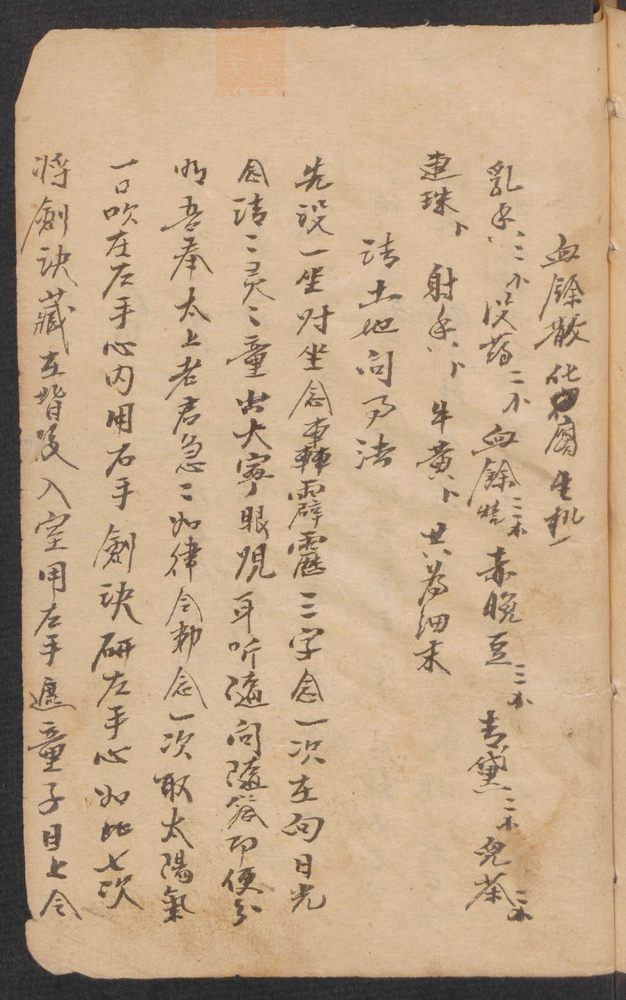 血餘散 化腐生机
乳香二小 没药二小 血餘 三小 赤豌豆三小 青黛二小 兒茶三小
連珠卜 射香卜 牛黄卜 共為細末
請土地问事法
先設一坐对坐念轟霹靂三字念一次左向日光
念清二灵二童出大寧眼覌耳听隨问隨答即便分
明吾奉太上老君急二如律令勅念一次取太陽氣
一口吹在左手心内用右手劍訣研左手心如此七次
将劍訣藏在背後入室用左手遮童子目上令